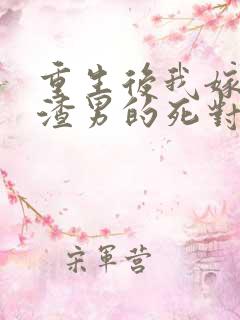 重生後我嫁
渣男的死對
宋軍营